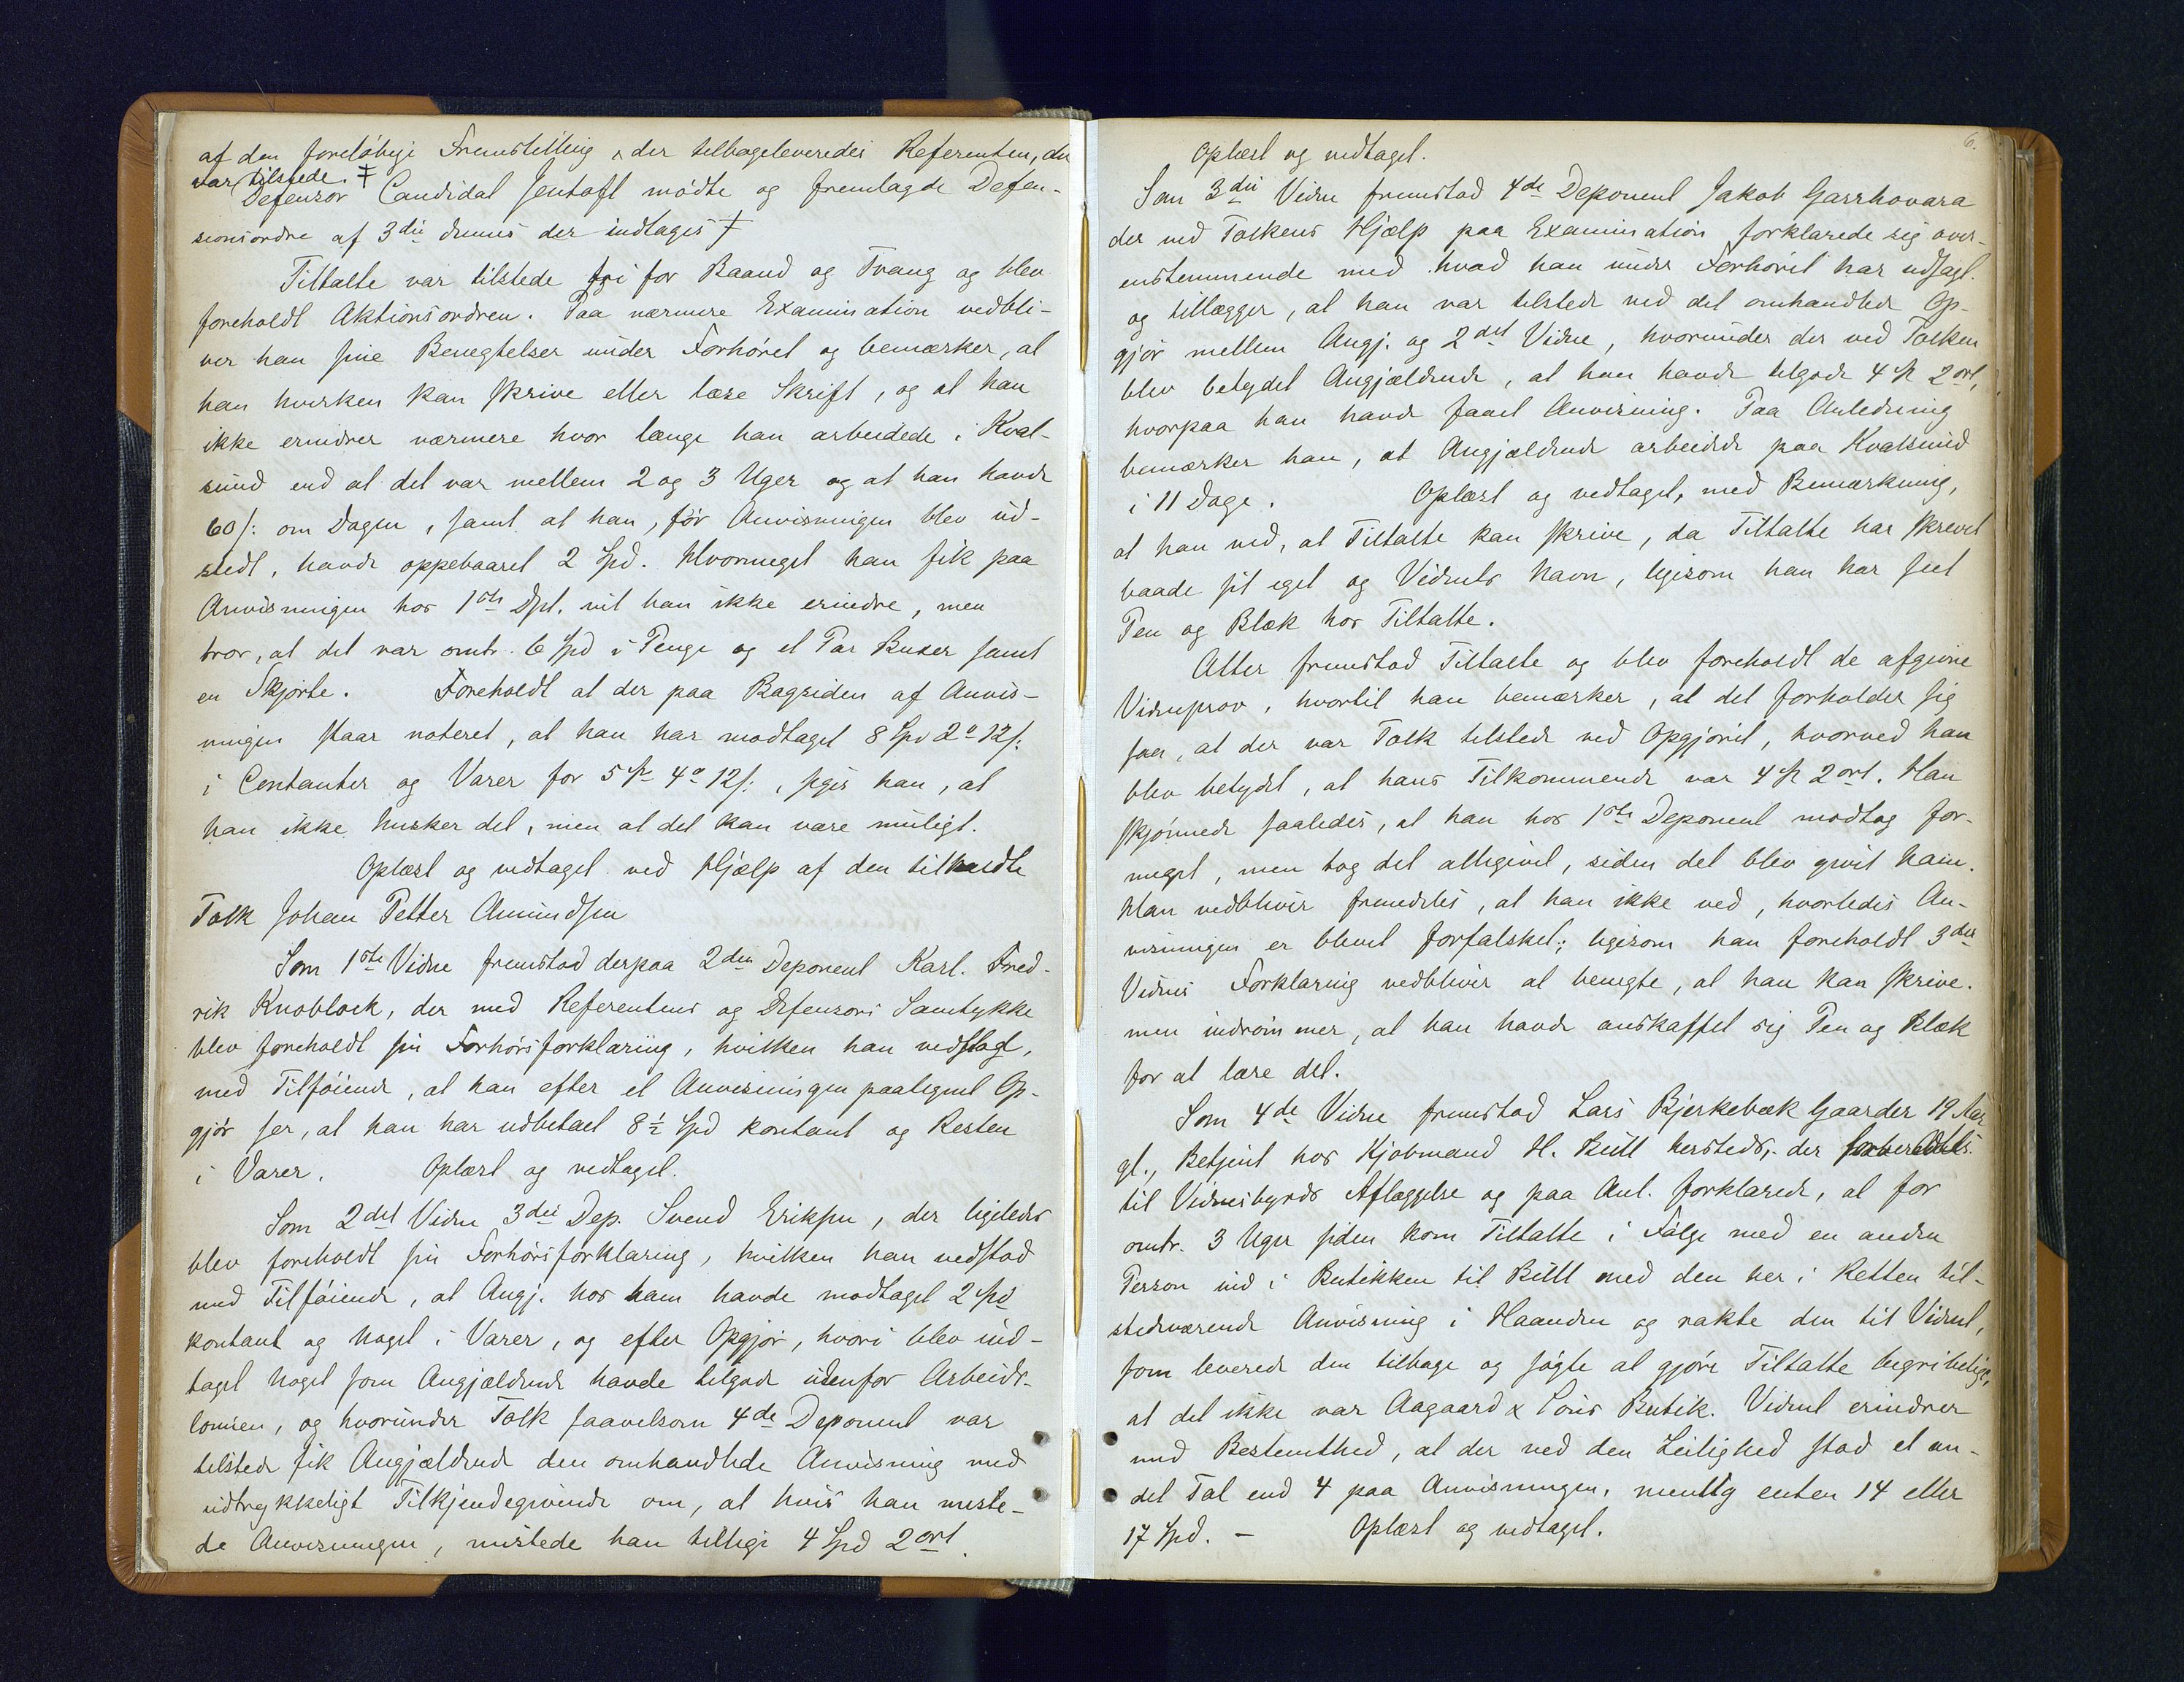 af den foreløbige Fremstilling ^ der tilbageleveredes Referenten, der
var tilstede. ‡
Defensor Candidat Jentoft mødte og fremlagde Defen-
sionsordre af 3die dennes der indtages ‡
Tiltalte var tilstede fri for Baand og Tvang og blev
foreholdt Aktionsordren. Paa nærmere Examination vedbli-
ver han sine Benegtelser under Forhøret og bemærker, at
han hverken kan skrive eller læse Skrift, og at han
ikke erindrer nærmere hvor længe han arbeidede i Kval-
sund end at det var mellem 2 og 3 Uger og at han havde
60 /: om Dagen, samt at han, før Anvisningen blev ud-
stedt, havde oppebaaret 2 Spd. Hvormeget han fik paa
Anvisningen hos 1ste Dpt. vil han ikke erindre, men
tror, at det var omtr. 6 Spd i Penge og et Par Buxer samt
en Skjorte. Foreholdt at der paa Bagsiden af Anvis-
ningen staar noteret, at han har modtaget 8 Spd 2o 12/:
i Contanter og Varer for 5 Sp 4o 12/:, siges han, at
han ikke husker det, men at det kan være muligt.
Oplæst og vedtaget ved Hjælp af den tilkaldte
Tolk Johan Petter Amundsen
Som 1ste Vidne fremstod derpaa 2den Deponent Karl. Fred-
rik Knoblock, der med Referentens og Defensors Samtykke
blev foreholdt sin Forhørsforklaring, hvilken han vedtog,
med Tilføiende, at han efter et Anvisningen paategnet Op-
gjør ser, at han har udbetalt 8 1/2 Spd kontant og Resten
i Varer. Oplæst og vedtaget.
Som 2det Vidne 3die Dep. Svend Eriksen, der ligeledes
blev foreholdt sin Forhørsforklaring, hvilken han vedstod
med Tilføiende, at Angj. hos ham havde modtaget 2 Spd
kontant og noget i Varer, og efter Opgjør, hvori blev ind-
taget noget som Angjældende havde tilgode udenfor Arbeids-
lønnen, og hvorunder Tolk saavelsom 4de Deponent var
tilstede fik Angjældende den omhandlede Anvisning med
udtrykkeligt Tilkjendegivende om, at hvis han miste-
de Anvisningen, mistede han tillige 4 Spd 2 ort.
6.
Oplæst og vedtaget.
Som 3die Vidne fremstod 4de Deponent Jakob Garrhovara
der ved Tolkens Hjælp paa Examination forklarede sig over-
enstemmende med hvad han under Forhøret har udsagt.
og tillægger, at han var tilstede ved det omhandlede Op-
gjør mellem Angj. og 2det Vidne, hvorunder der ved Tolken
blev betydet Angjældende, at han havde tilgode 4 Sp 2 ort,
hvorpaa han havde faaet Anvisning. Paa Anledning
bemærker han, at Angjældende arbeidede paa Kvalsund
i 11 Dage. Oplæst og vedtaget, med Bemærkning,
at han ved, at Tiltalte kan skrive, da Tiltalte har skrevet
baade sit eget og Vidnets Navn, ligesom han har seet
Pen og Blæk hos Tiltalte.
Atter fremstod Tiltalte og blev foreholdt de afgivne
Vidneprov, hvortil han bemærker, at det forholder sig
saa, at der var Tolk tilstede ved Opgjøret, hvorved han
blev betydet, at hans Tilkommende var 4 Sp 2 ort. Han
skjønnede saaledes, at han hos 1ste Deponent modtog for-
meget, men tog det alligevel, siden det blev givet ham.
Han vedbliver fremdeles, at han ikke ved, hvorledes An-
visningen er blevet forfalsket; ligesom han foreholdt 3die
Vidnes Forklaring vedbliver at benegte, at han kan skrive.
men indrømmer, at han havde anskaffet sig Pen og Blæk
for at lære det.
Som 4de Vidne fremstod Lars Bjerkebæk Gaarder 19 Aar
gl., Betjent hos Kjøbmand H. Bull hersteds, der forberedtes
til Vidnesbyrds Aflæggelse og paa Anl. forklarede, at for
omtr. 3 Uger siden kom Tiltalte i Følge med en anden
Person ind i Butikken til Bull med den her i Retten til-
stedeværende Anvisning i Haanden og rakte den til Vidnet,
som leverede den tilbage og søgte at gjøre Tiltalte begribeligt,
at det ikke var Aagaard & Søns Butik. Vidnet erindrer
med Bestemthed, at der ved den Leilighed stod et an-
det Tal end 4 paa Anvisningen, nemlig enten 14 eller
17 Spd. – Oplæst og vedtaget.